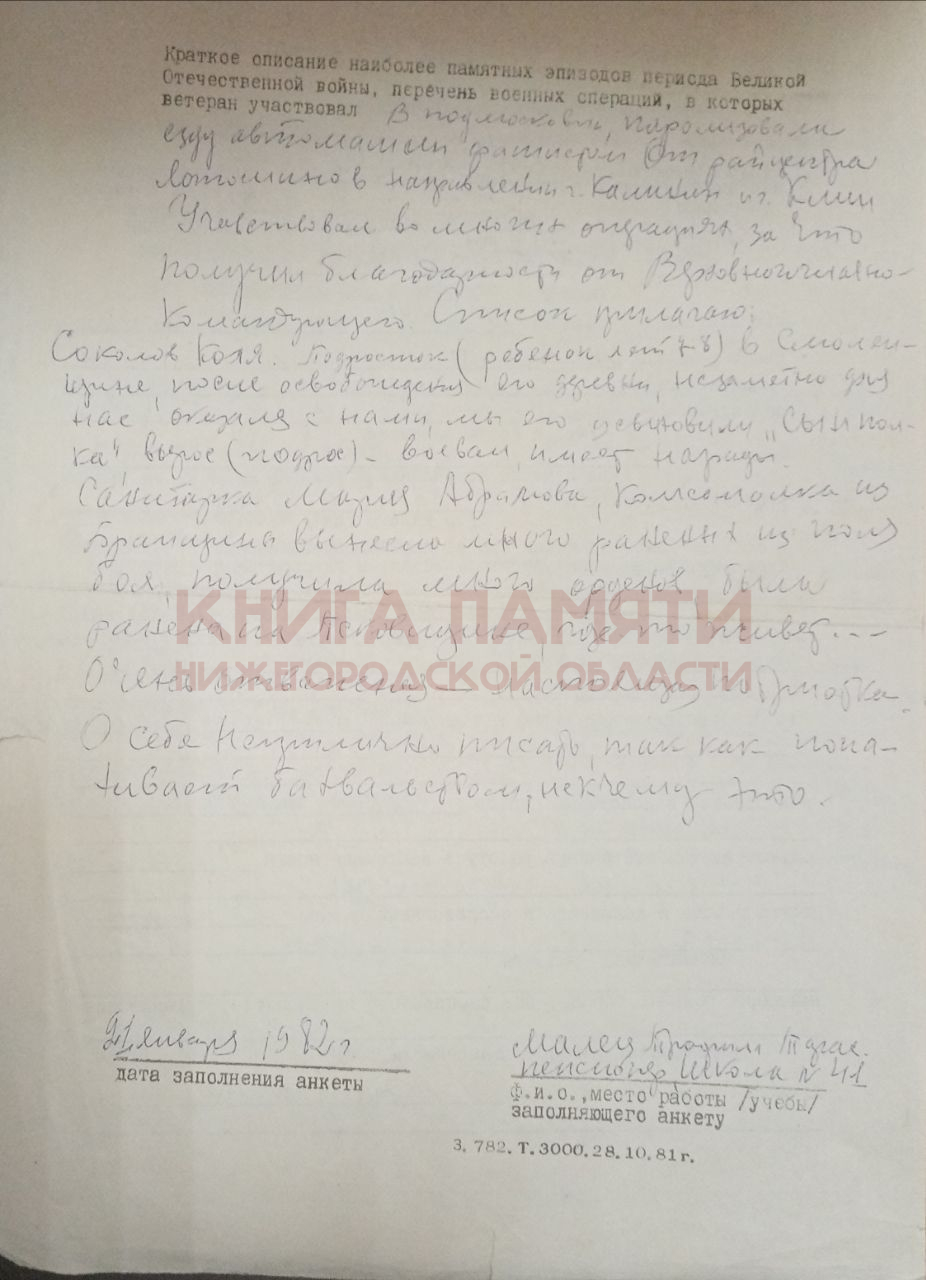 Краткое описание наиболее памятных эпизодов периода Великой
Отечественной войны, перечень военных операций, в которых
ветеран участвовал В подмосковьи, парализовали
езду автомашин фашистам От райцентра
Лотошино в направлении г. Калинин и г. Клин
Участвовал во многих операциях, за что
получил благодарности от Верховногоглавно-
командующего. Список прилагаю:
Соколов Коля. Подросток (ребенок лет 7-8) в Смолен-
щине, после освобождения его деревни, незаметно для
нас оказался с нами, мы его „Сын пол-
ка", вырос (подрос) - воевал, имеет награды.
Санитарка Мария Абрамова, комсомолка из
Брянщины вынесла много раненых из поля
боя, получила много орденов, была
ранена на Псковщине, где то живет...
Очень отважная — настоящая патриотка.
О себе неприлично писать, так как попа-
хивает бахвальством, некчему это.
КНИГА ПАМЯТИ
НИЖЕГОРОДСКОЙ ОБЛАСТИ
21 января 1982 г
дата заполнения анкеты
Малец Трофим Тарас.
пенсионер Школа № 41
Ф.и.о., место работы /учебы/
заполняющего анкету
З. 782. Т. 3000. 28. 10. 81 г.